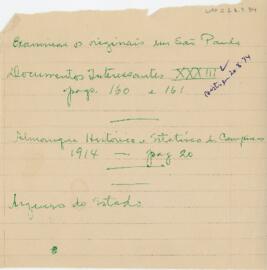 Examinar os originais em São Paulo
Documentos Interessantes XXXIII
pags. 160 e 161
Almanque Historico e Estatistico de Campinas
1914 — pag 20
Arquivo do Estado